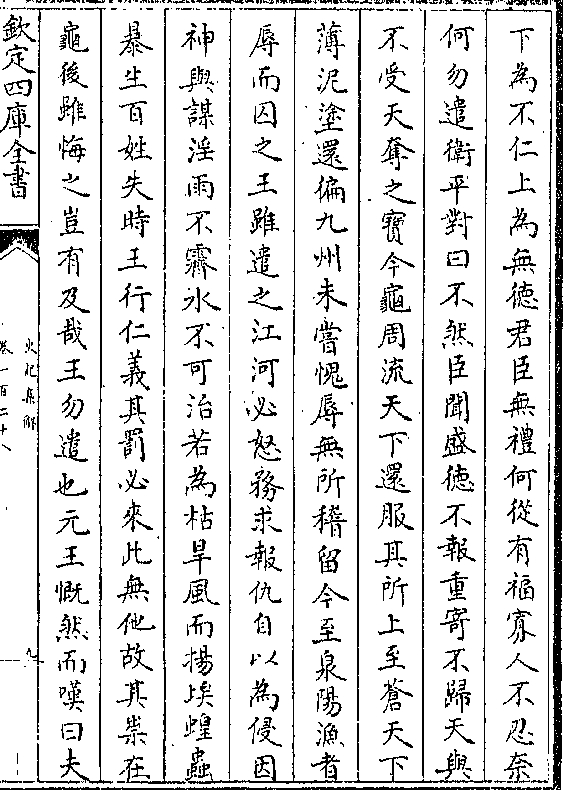 下為不仁上為無德君臣無禮何從有福寡人不忍奈
何勿遣衛平對曰不然臣聞盛德不報重寄不歸天與
不受天奪之寶今龜周流天下還服其所上至蒼天下
薄泥塗還徧九州未嘗愧辱無所稽留今至泉陽漁者
辱而囚之王雖遣之江河必怒務求報仇自以為侵因
神與謀淫雨不霽水不可治若為枯旱風而揚埃蝗蟲
暴生百姓失時王行仁義其罰必來此無他故其祟在
龜後雖悔之豈有及哉王勿遣也元王慨然而嘆曰夫
欽定四庫全書
史記集解
卷一百二十八
九